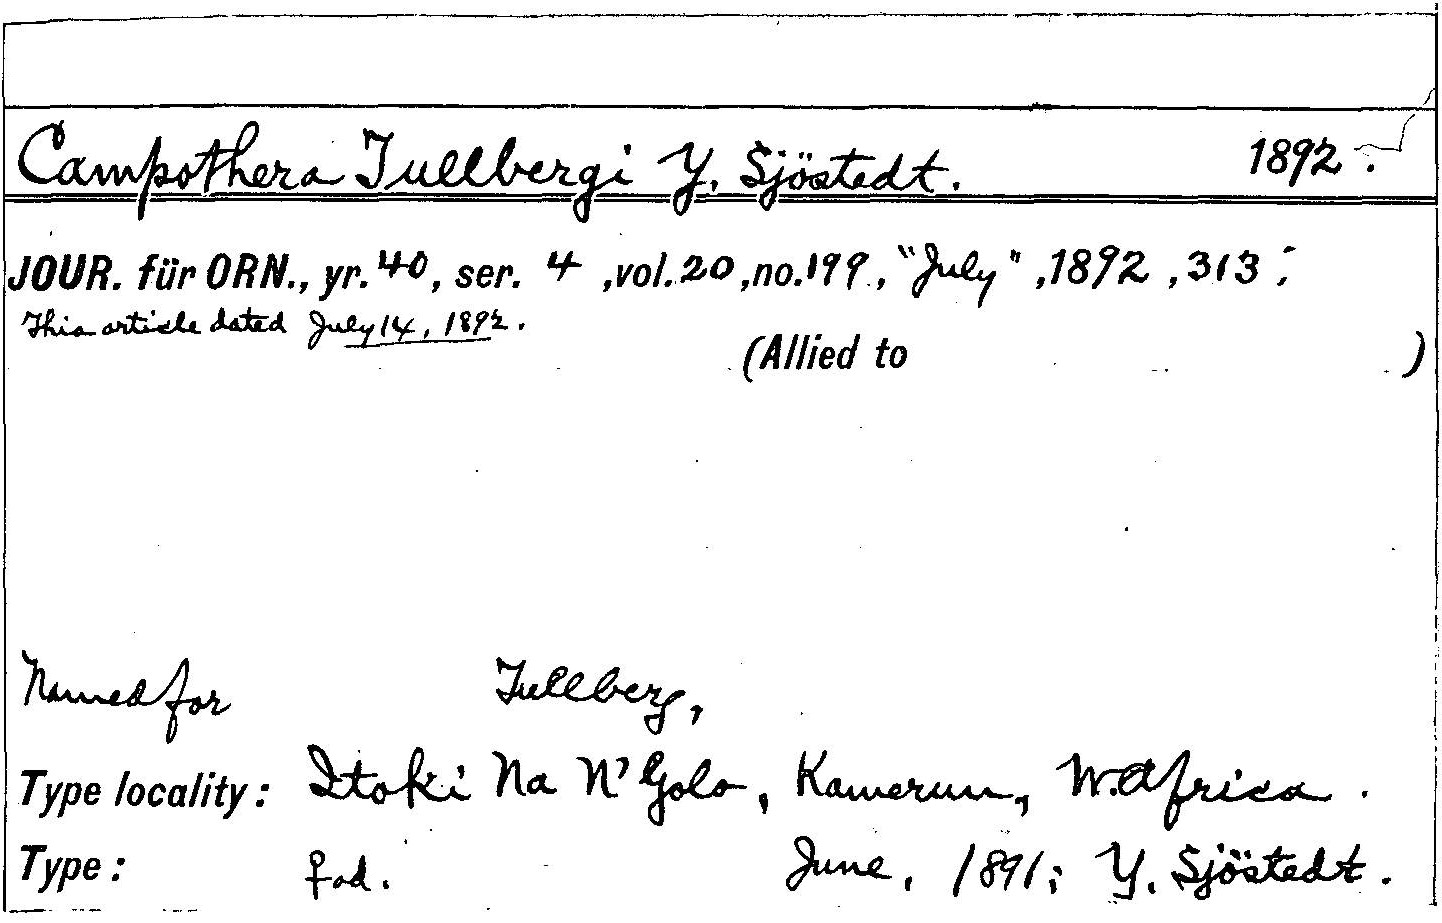 Campothera Tullbergi Y. Sjöstedt. 1892.
JOUR. für ORN., yr. 40, ser. 4, vol. 20, no. 199, "July", 1892, 313;
This article dated July 14, 1892.
(Allied to )
Named for Tullberg,
Type locality: Itoki Na N'Golo, Kamerun, W. Africa.
Type: ♀ ad. June, 1891; Y. Sjöstedt.